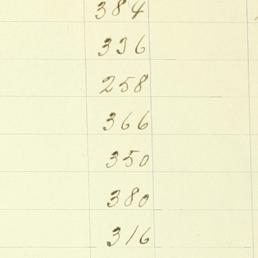 384
336
258
366
350
380
316